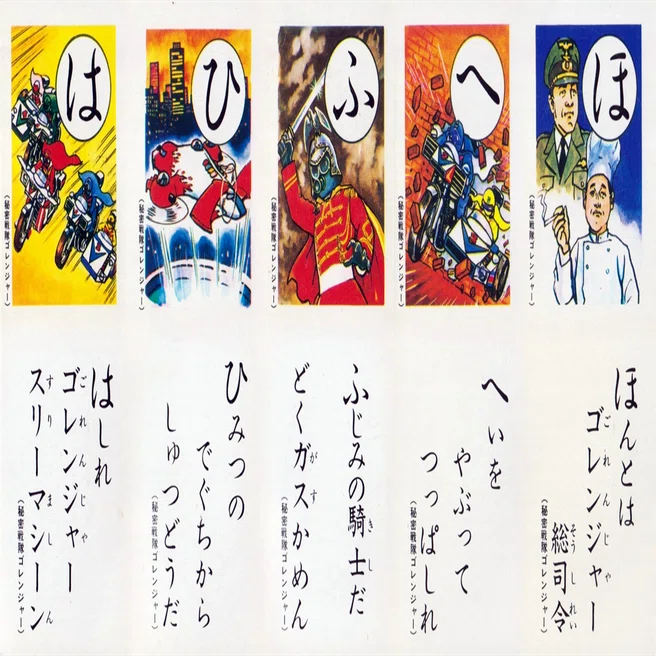 ほ
(秘密戦隊ゴレンジャー)
へ
(秘密戦隊ゴレンジャー)
ふ
(秘密戦隊ゴレンジャー)
ひ
(秘密戦隊ゴレンジャー)
は
(秘密戦隊ゴレンジャー)
ほんとは
ゴレンジャー
ごれんじゃ
総司令
そうしれい
(秘密戦隊ゴレンジャー)
へいを
やぶって
つっぱしれ
(秘密戦隊ゴレンジャー)
ふじみの騎士だ
きし
どくガスかめん
がす
(秘密戦隊ゴレンジャー)
ひみつの
でぐちから
しゅつどうだ
(秘密戦隊ゴレンジャー)
はしれ
ゴレンジャー
ごれんじゃ
スリーマシーン
すりましん
(秘密戦隊ゴレンジャー)